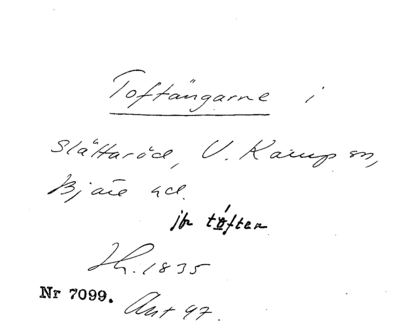 Toftängarne i
Slättaröd, V. Karup sn,
Bjäre hd.
jfr tofter
Sk. 1835
Nr 7099. Akt 97.